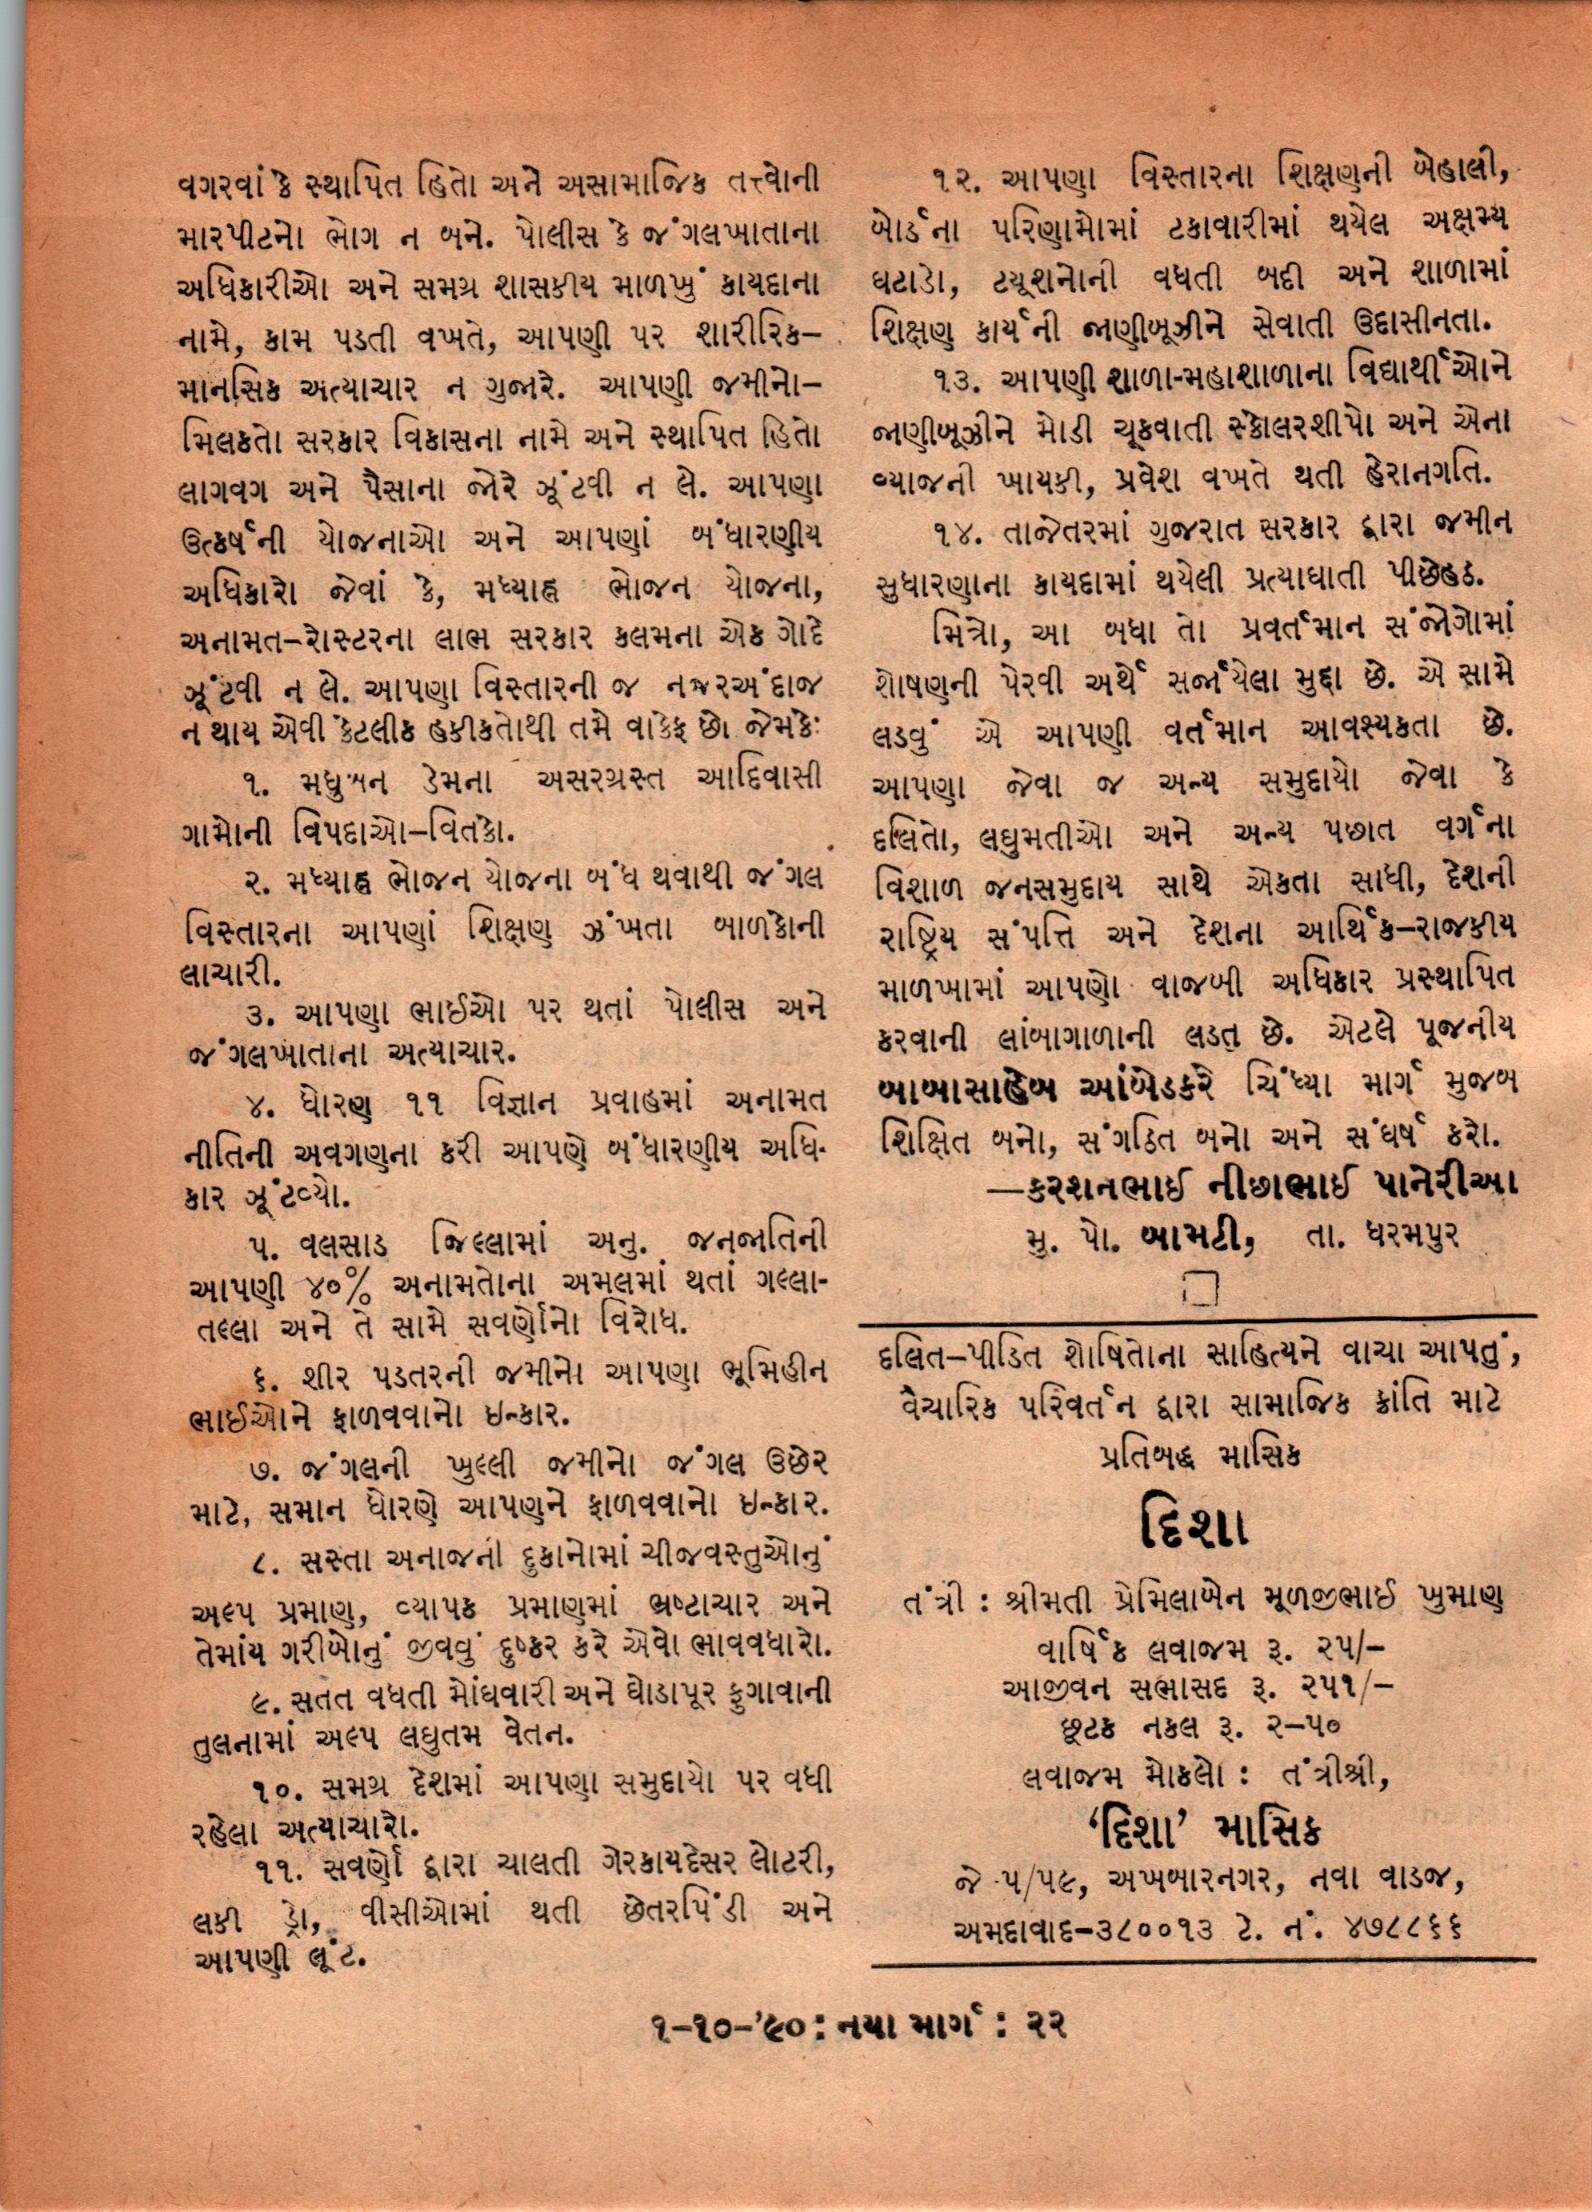 વગરવાંકે સ્થાપિત હિતો અને અસામાજિક તત્ત્વોની
મારપીટનો ભોગ ન બને. પોલીસ કે જંગલખાતાના
અધિકારીઓ અને સમગ્ર શાસકીય માળખું કાયદાના
નામે, કામ પડતી વખતે, આપણી પર શારીરિક–
માનસિક અત્યાચાર ન ગુજારે. આપણી જમીનો–
મિલકતો સરકાર વિકાસના નામે અને સ્થાપિત હિતો
લાગવગ અને પૈસાના જોરે ઝૂંટવી ન લે. આપણા
ઉત્કર્ષની યોજનાઓ અને આપણાં બંધારણીય
અધિકારો જેવાં કે, મધ્યાહ્ન ભોજન યોજના,
અનામત–રોસ્ટરના લાભ સરકાર કલમના એક ગોદે
ઝૂંટવી ન લે. આપણા વિસ્તારની જ નજરઅંદાજ
ન થાય એવી કેટલીક હકીકતોથી તમે વાકેફ છો જેમકેઃ
૧. મધુબન ડેમના અસરગ્રસ્ત આદિવાસી
ગામોની વિપદાઓ–વિતકો.
૨. મધ્યાહ્ન ભોજન યોજના બંધ થવાથી જંગલ
વિસ્તારના આપણાં શિક્ષણ ઝંખતા બાળકોની
લાચારી.
૩. આપણા ભાઈઓ પર થતાં પોલીસ અને
જંગલખાતાના અત્યાચાર.
૪. ધોરણ ૧૧ વિજ્ઞાન પ્રવાહમાં અનામત
નીતિની અવગણના કરી આપણે બંધારણીય અધિ-
કાર ઝૂંટવ્યો.
૫. વલસાડ જિલ્લામાં અનુ. જનજાતિની
આપણી ૪૦% અનામતોના અમલમાં થતાં ગલ્લા-
તલ્લા અને તે સામે સવર્ણોનો વિરોધ.
૬. શીર પડતરની જમીનો આપણા ભૂમિહીન
ભાઈઓને ફાળવવાનો ઇન્કાર.
૭. જંગલની ખુલ્લી જમીનો જંગલ ઉછેર
માટે, સમાન ધોરણે આપણને ફાળવવાનો ઇન્કાર.
૮. સસ્તા અનાજની દુકાનોમાં ચીજવસ્તુઓનું
અલ્પ પ્રમાણ, વ્યાપક પ્રમાણમાં ભ્રષ્ટાચાર અને
તેમાંય ગરીબોનું જીવવું દુષ્કર કરે એવો ભાવવધારો.
૯. સતત વધતી મોંઘવારી અને ઘોડાપૂર ફુગાવાની
તુલનામાં અલ્પ લઘુતમ વેતન.
૧૦. સમગ્ર દેશમાં આપણા સમુદાયો પર વધી
રહેલા અત્યાચારો.
૧૧. સવર્ણો દ્વારા ચાલતી ગેરકાયદેસર લોટરી,
લકી ડ્રો, વીસીઓમાં થતી છેતરપિંડી અને
આપણી લૂંટ.
૧૨. આપણા વિસ્તારના શિક્ષણની બેહાલી,
બોર્ડના પરિણામોમાં ટકાવારીમાં થયેલ અક્ષમ્ય
ઘટાડો, ટયૂશનોની વધતી બદી અને શાળામાં
શિક્ષણ કાર્યની જાણીબૂઝીને સેવાતી ઉદાસીનતા.
૧૩. આપણી શાળા-મહાશાળાના વિદ્યાર્થીઓને
જાણીબૂઝીને મોડી ચૂકવાતી સ્કોલરશીપો અને એના
વ્યાજની ખાયકી, પ્રવેશ વખતે થતી હેરાનગતિ.
૧૪. તાજેતરમાં ગુજરાત સરકાર દ્વારા જમીન
સુધારણાના કાયદામાં થયેલી પ્રત્યાઘાતી પીછેહઠ.
મિત્રો, આ બધા તો પ્રવર્તમાન સંજોગોમાં
શોષણની પેરવી અર્થે સર્જાયેલા મુદ્દા છે. એ સામે
લડવું એ આપણી વર્તમાન આવશ્યકતા છે.
આપણા જેવા જ અન્ય સમુદાયો જેવા કે
દલિતો, લઘુમતીઓ અને અન્ય પછાત વર્ગના
વિશાળ જનસમુદાય સાથે એકતા સાધી, દેશની
રાષ્ટ્રિય સંપત્તિ અને દેશના આર્થિક–રાજકીય
માળખામાં આપણો વાજબી અધિકાર પ્રસ્થાપિત
કરવાની લાંબાગાળાની લડત છે. એટલે પૂજનીય
બાબાસાહેબ આંબેડકરે ચિંધ્યા માર્ગ મુજબ
શિક્ષિત બનો, સંગઠિત બનો અને સંઘર્ષ કરો.
—કરશનભાઈ નીછાભાઈ પાનેરીઆ
મુ. પો. બામટી, તા. ધરમપુર
દલિત–પીડિત શોષિતોના સાહિત્યને વાચા આપતું,
વૈચારિક પરિવર્તન દ્વારા સામાજિક ક્રાંતિ માટે
પ્રતિબદ્ધ માસિક
દિશા
તંત્રી : શ્રીમતી પ્રેમિલાબેન મૂળજીભાઈ ખુમાણ
વાર્ષિક લવાજમ રૂ. ૨૫/–
આજીવન સભાસદ રૂ. ૨૫૧/–
છૂટક નકલ રૂ. ૨–૫૦
લવાજમ મોકલો : તંત્રીશ્રી,
‘દિશા’ માસિક
જે ૫/૫૯, અખબારનગર, નવા વાડજ,
અમદાવાદ–૩૮૦૦૧૩ ટે. નં. ૪૭૮૮૬૬
૧–૧૦–’૯૦ : નયા માર્ગ : ૨૨